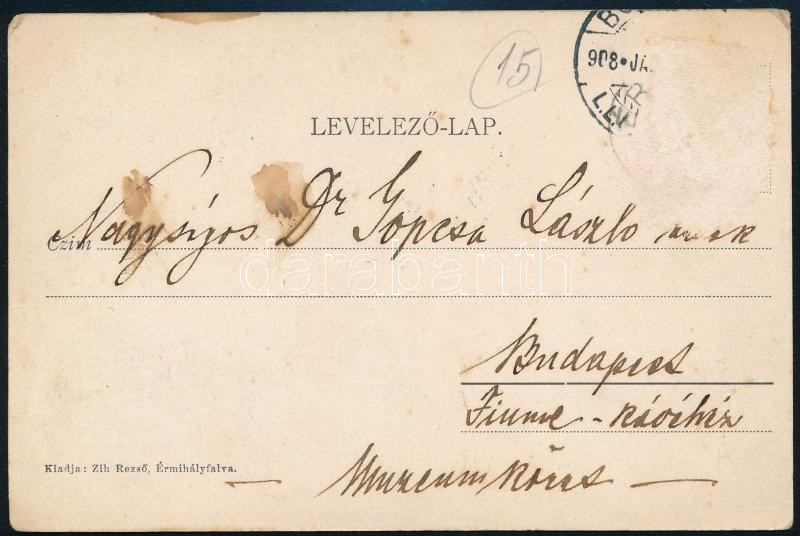 15
908 • JA
LEVELEZŐ-LAP.
Czim Nagysígos Dr Gopcsa László urnak
darabanth
Budapest
Fiume - kávéház
Muzeum körut
Kiadja: Zih Rezső, Érmihályfalva.